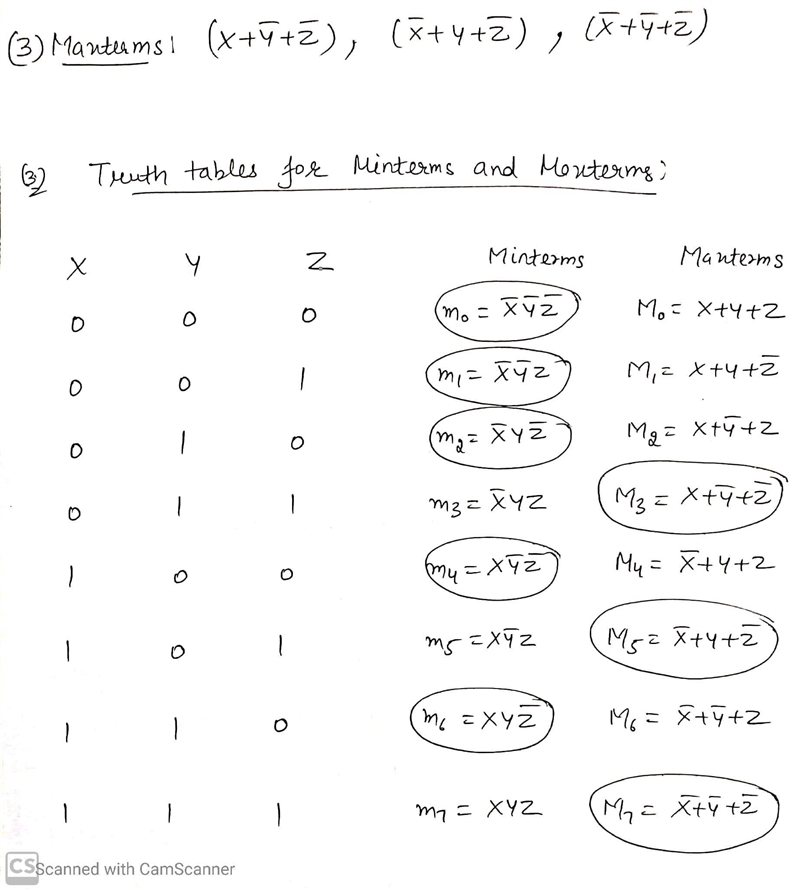 (3) Manterms: (X+Y̅+Z̅), (X̅+Y+Z̅), (X̅+Y̅+Z̅)
(3) Truth tables for Minterms and Monterms;
X Y Z Minterms Manterms
0 0 0 m₀ = X̅Y̅Z̅ M₀ = X+Y+Z
0 0 1 m₁ = X̅Y̅Z M₁ = X+Y+Z̅
0 1 0 m₂ = X̅YZ̅ M₂ = X+Y̅+Z
0 1 1 m₃ = X̅YZ M₃ = X+Y̅+Z̅
1 0 0 m₄ = XY̅Z̅ M₄ = X̅+Y+Z
1 0 1 m₅ = XY̅Z M₅ = X̅+Y+Z̅
1 1 0 m₆ = XYZ̅ M₆ = X̅+Y̅+Z
1 1 1 m₇ = XYZ M₇ = X̅+Y̅+Z̅
CS Scanned with CamScanner